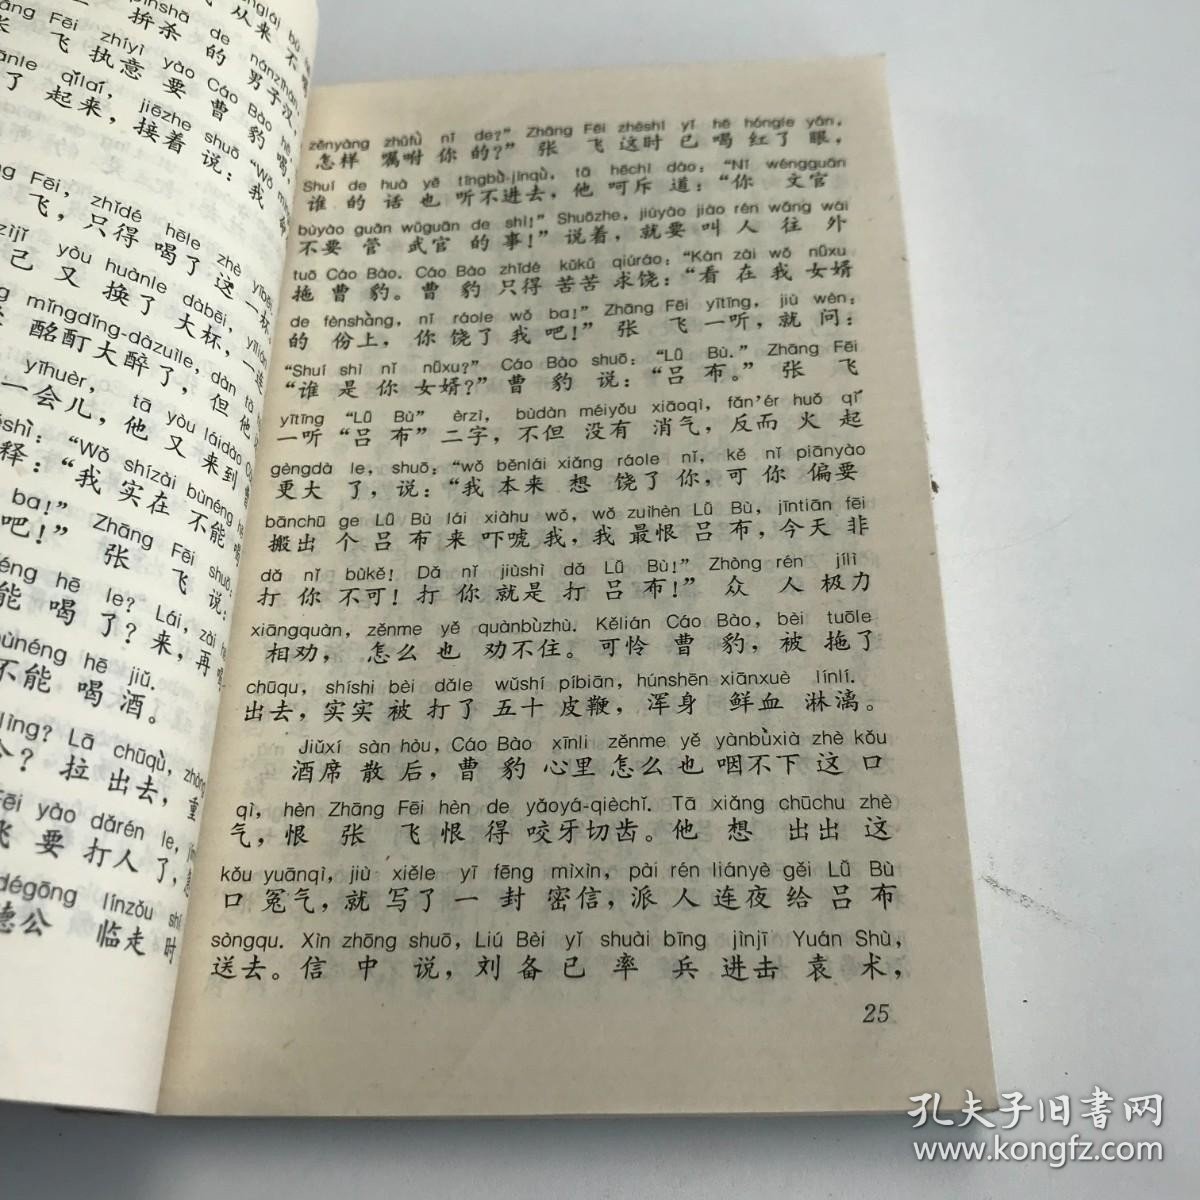 从来不喝
拚杀的男子汉，
张飞执意要曹豹喝，
了起来，接着说：“我
飞，只得喝了这一杯。
己又换了大杯，一连
酩酊大醉了，但他
一会儿，他又来到曹
释：“我实在不能喝
吧！”张飞说：
能喝了？来，再喝
不能喝酒。
令？拉出去，重
飞要打人了，
德公临走时
zěnyàng zhǔfù nǐ de?” Zhāng Fēi zhèshí yǐ hē hóngle yǎn,
怎样嘱咐你的？”张飞这时已喝红了眼，
Shuí de huà yě tīngbù-jìnqù, tā hēchì dào: “Nǐ wénguān
谁的话也听不进去，他呵斥道：“你文官
bùyào guǎn wǔguān de shì!” Shuōzhe, jiùyào jiào rén wǎng wài
不要管武官的事！”说着，就要叫人往外
tuō Cáo Bào. Cáo Bào zhǐdé kǔkǔ qiúráo: “Kàn zài wǒ nǚxu
拖曹豹。曹豹只得苦苦求饶：“看在我女婿
de fènshàng, nǐ ráole wǒ ba!” Zhāng Fēi yītīng, jiù wèn:
的份上，你饶了我吧！”张飞一听，就问：
“Shuí shì nǐ nǚxu?” Cáo Bào shuō: “Lǚ Bù.” Zhāng Fēi
“谁是你女婿？”曹豹说：“吕布。”张飞
yītīng “Lǚ Bù” èrzì, bùdàn méiyǒu xiāoqì, fǎn'ér huǒ qǐ
一听“吕布”二字，不但没有消气，反而火起
gèngdà le, shuō: “wǒ běnlái xiǎng ráole nǐ, kě nǐ piānyào
更大了，说：“我本来想饶了你，可你偏要
bānchū ge Lǚ Bù lái xiàhu wǒ, wǒ zuìhèn Lǚ Bù, jīntiān fēi
搬出个吕布来吓唬我，我最恨吕布，今天非
dǎ nǐ bùkě! Dǎ nǐ jiùshì dǎ Lǚ Bù!” Zhòng rén jílì
打你不可！打你就是打吕布！”众人极力
xiāngquàn, zěnme yě quànbùzhù. Kělián Cáo Bào, bèi tuōle
相劝，怎么也劝不住。可怜曹豹，被拖了
chūqu, shíshi bèi dǎle wǔshí píbiān, húnshēn xiānxuè línlí.
出去，实实被打了五十皮鞭，浑身鲜血淋漓。
Jiǔxí sàn hòu, Cáo Bào xīnli zěnme yě yànbùxià zhè kǒu
酒席散后，曹豹心里怎么也咽不下这口
qì, hèn Zhāng Fēi hèn de yǎoyá-qièchǐ. Tā xiǎng chūchu zhè
气，恨张飞恨得咬牙切齿。他想出出这
kǒu yuānqì, jiù xiěle yī fēng mìxìn, pài rén liányè gěi Lǚ Bù
口冤气，就写了一封密信，派人连夜给吕布
sòngqu. Xìn zhōng shuō, Liú Bèi yǐ shuài bīng jìnjī Yuán Shù,
送去。信中说，刘备已率兵进击袁术，
25
孔夫子旧书网
www.kongfz.com